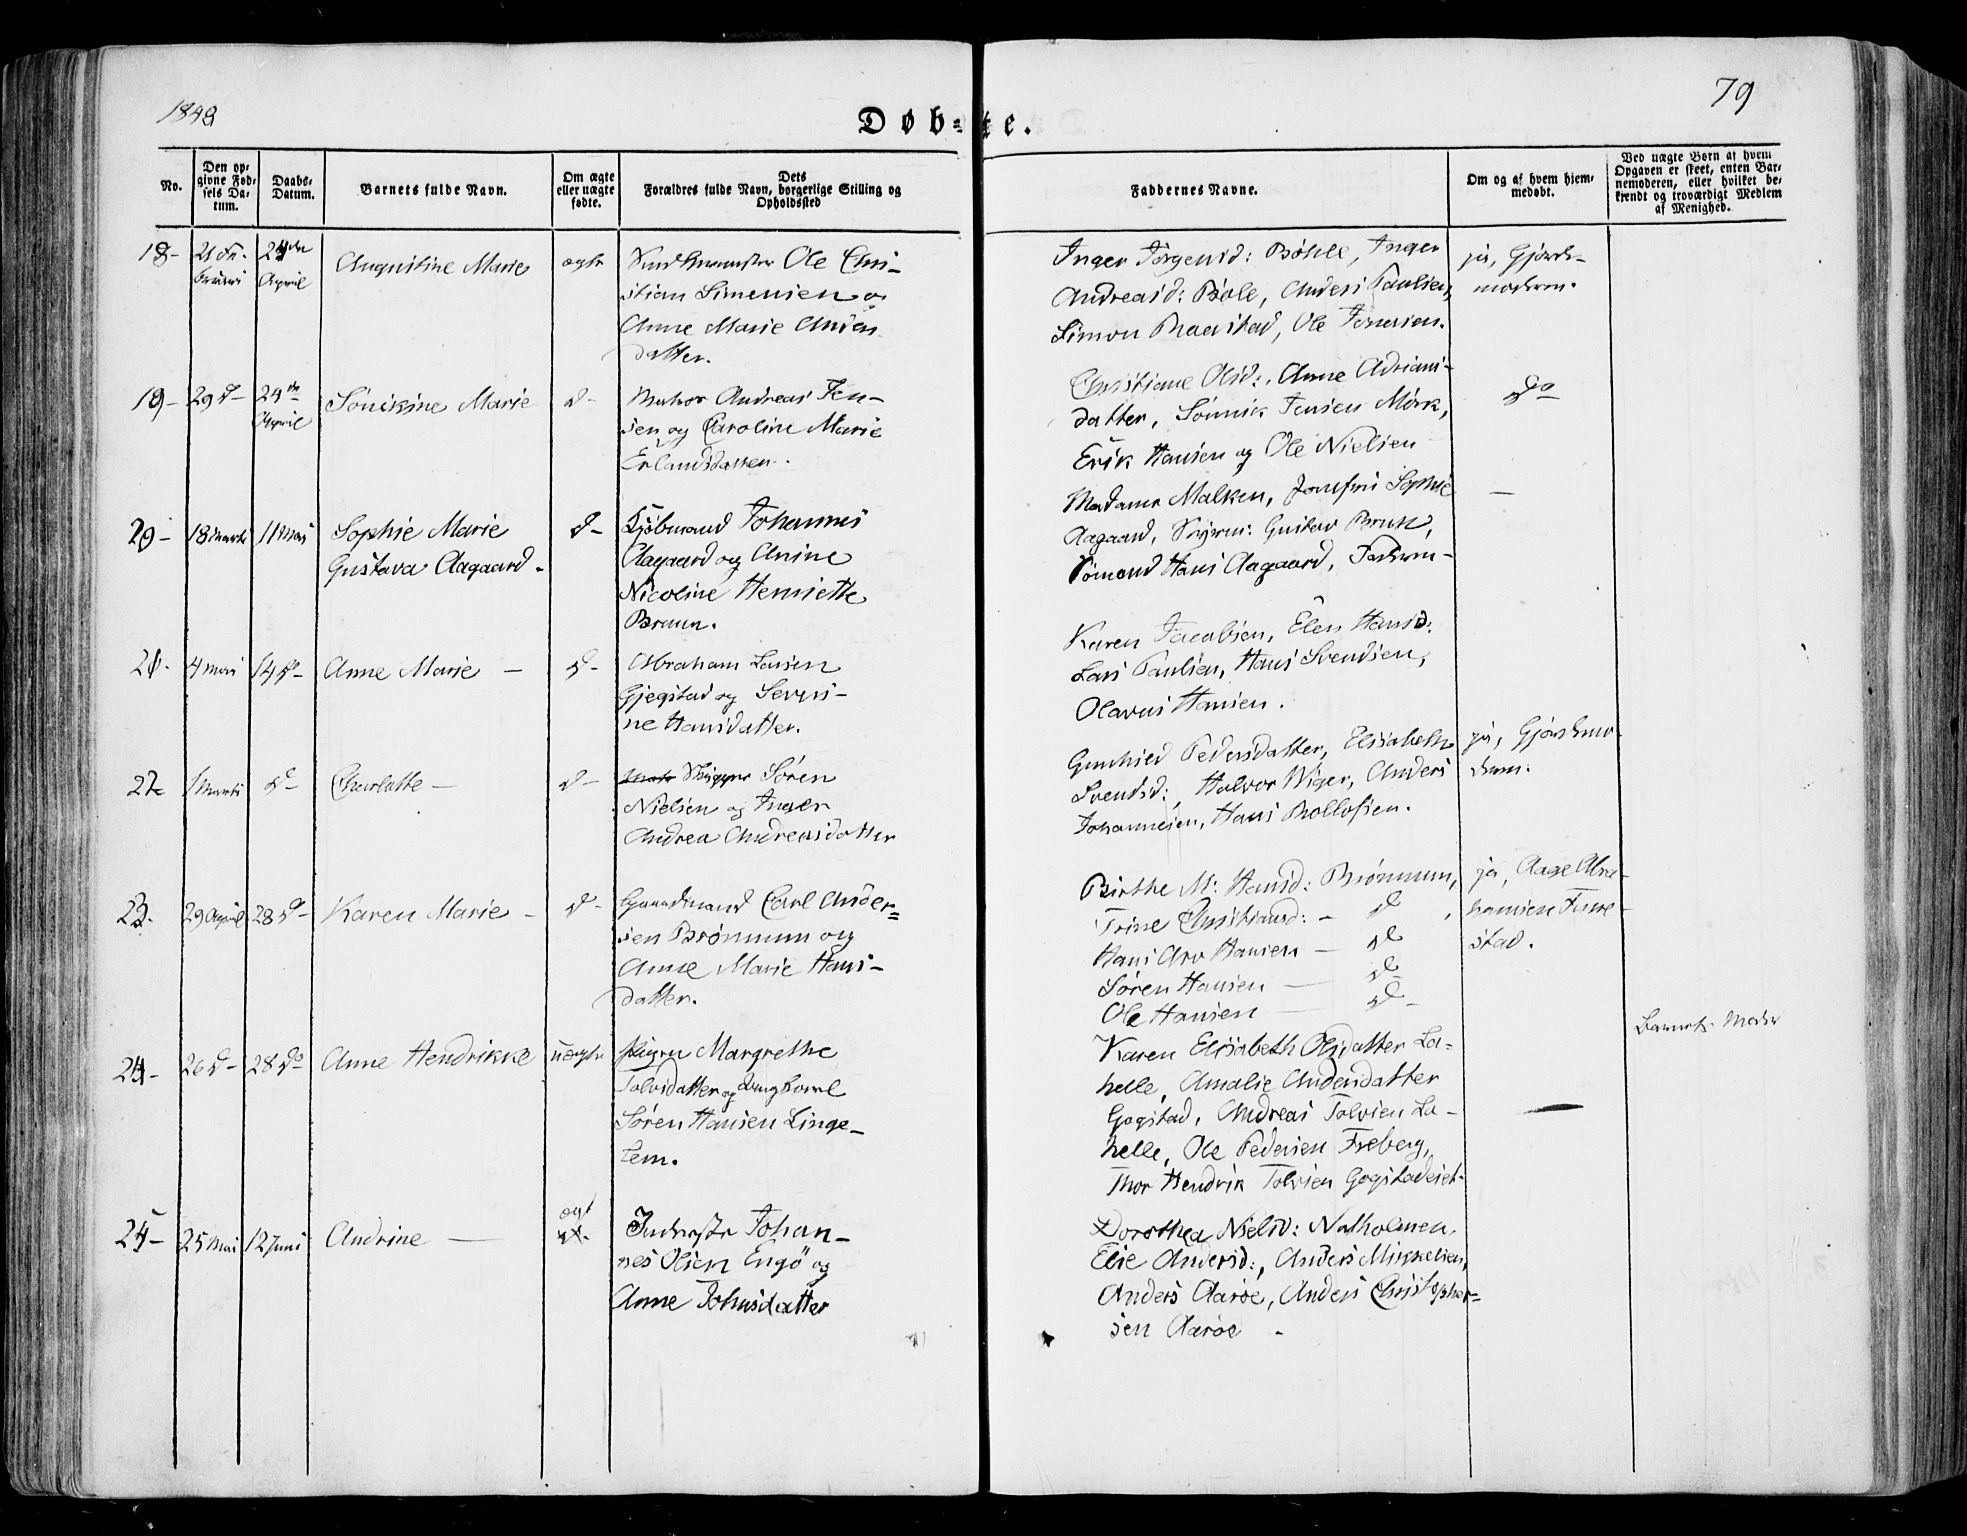 1848
79
Døb=te.
No.
Den op-
givne Fød-
sels Da-
tum.
Daabs-
Datum.
Barnets fulde Navn.
Om ægte
eller uægte
fødte.
Dets
Forældres fulde Navn, borgerlige Stilling og
Opholdssted
Faddernes Navne.
Om og af hvem hjem-
medøbt.
Ved uægte Børn af hvem
Opgaven er skeet, enten Bar-
nemoderen, eller hvilket be-
kjendt og troværdigt Medlem
af Menighed.
18- 21 Fe-
bruari
24de
April
Augustine Marie
ægte
Ole Chri-
stian Simensen og
Anne Marie
datter.
Inger Jörgensd: Böhle, Inger
Andreasd: Böle, Anders Paulsen,
Simon Praestad, Ole
ja, Gjorde-
moderen.
19- 29 d- 24de
April
Sönikine Marie
d-
Andreas Jen-
sen og Caroline Marie
Erlandsdatter.
Christiane Olsd:, Anne Adrians-
datter, Sönnik Jensen Mörk,
Erik Hansen og Ole Nielsen
do
20- 18 Marts 11 Mai
Sophie Marie
Gustava Aagaard.
d-
Kjöbmand Johannes
Aagaard og Anine
Nicoline Henriette
Bruun.
Madame Malken, Sophie
Aagaard, Gustav Bruun,
Sömand Hans Aagaard, Faderen-
—
21. 4 Mai 14 do-
Anne Marie —
d-
Abraham Larsen
Gjegstad og Severi-
ne Hansdatter.
Karen Jacobsen, Elen Hansd:
Lars Paulsen, Hans Svendsen,
Olavus Hansen.
22 1 Marts d-
Charlotte —
d-
Skipper Sören
Nielsen og Inger
Andrea Andreasdatter
Gunhild Pedersdatter, Elisabeth
Svendsd:, Halvor Wiger, Anders
Johannesen, Hans Rollofsen.
ja, Gjordemo-
deren.
23. 29 April 28 do-
Karen Marie —
d-
Gaardmand Carl Ander=
sen Brönnum og
Anne Marie Hans-
datter.
Birthe M: Hansd: Brönnum,
Trine Christiansd: - do,
Hans Arv Hansen — do
Sören Hansen — do
Ole Hansen — do-
ja, Aage Abra-
hamsen
stad.
24- 26 d- 28 do
Anne Hendrikke
uægte
Pigen Margrethe
Tolvsdatter og Ungkarl
Sören Hansen Linge-
lem.
Karen Elisabeth Olsdatter La-
helle, Amalie Andersdatter
Gogstad, Andreas Tolvsen La-
helle, Ole Pedersen Freberg,
Thor Hendrik Tolvsen Gogstadeiet.
—
Barnets Moder
25- 25 Mai 12 Juni
Andrine —
ægt
Inderste Johan-
nes Olsen Engö og
Anne Johnsdatter
Dorothea Nielsd: Natholmen,
Elie Andersd:, Anders Mikkelsen,
Anders Aaröe, Anders Christopher=
sen Aaröe -